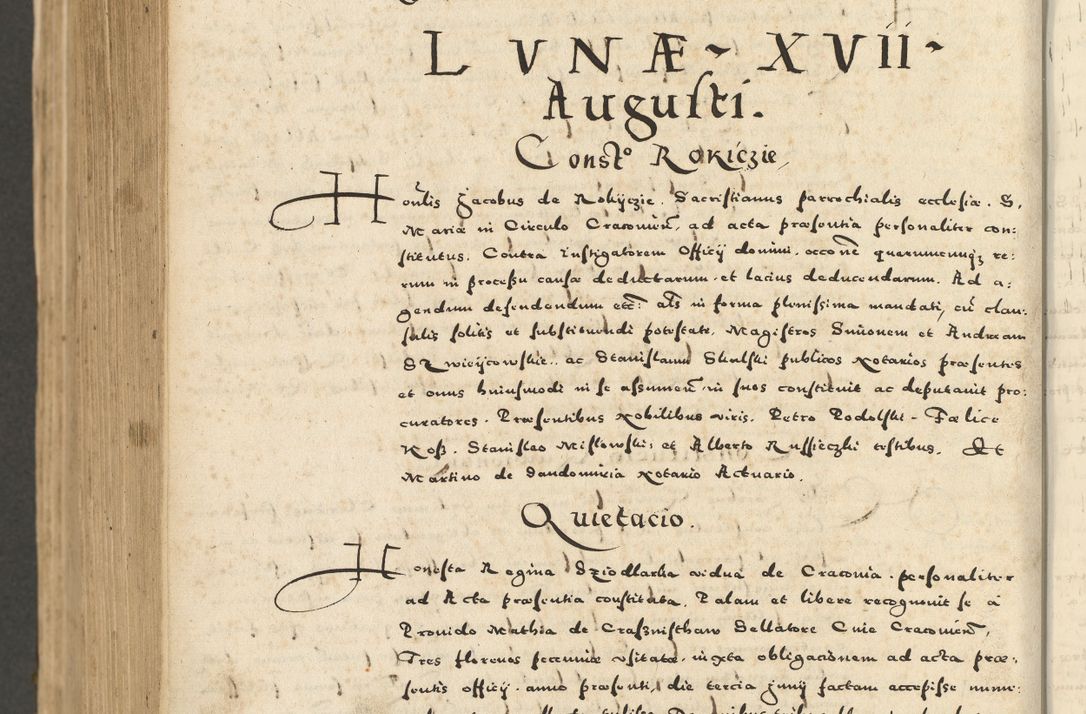 LVNÆ ~ XVII ~
Augusti.
Const° Rokiczie
Honlis Jacobus de Rokyczie. Sacristianus parrochialis ecclesiæ. S.
Mariæ in Circulo Cracouien, ad acta præsentia personaliter con:
stitutus. Contra Instigatorem Officij domini, occone quarumcunqz re:
rum in processu causæ deductarum. et lacius deducendarum. Ad a:
gendum defendendum etc: als in forma plenissima mandati, cu clau:
sulis solitis et substituendi potestate, Magistros Simonem et Andream
et onus huiusmodi in se assumen. in suos constituit ac deputauit pro:
curatores. Præsentibus Nobilibus viris. Petro Podolski - Fœlice
Koss. Stanislao Mislowski: et Alberto Russieczki testibus. Et
Martino de Sandomiria Notario Actuario.
Quietacio.
Honesta Regina Dziodlarka vidua de Cracouia. personaliter
ad Acta præsentia constituta. Palam et libere recognouit se á
Prouido Mathia de Crassnisthaw Sellatore Ciue Cracouien,
Tres florenos pecuniæ vsitatæ. iuxta obligacionem ad acta præ:
sentis officij. anno præsenti, die tercia Junij factam accepisse nume: